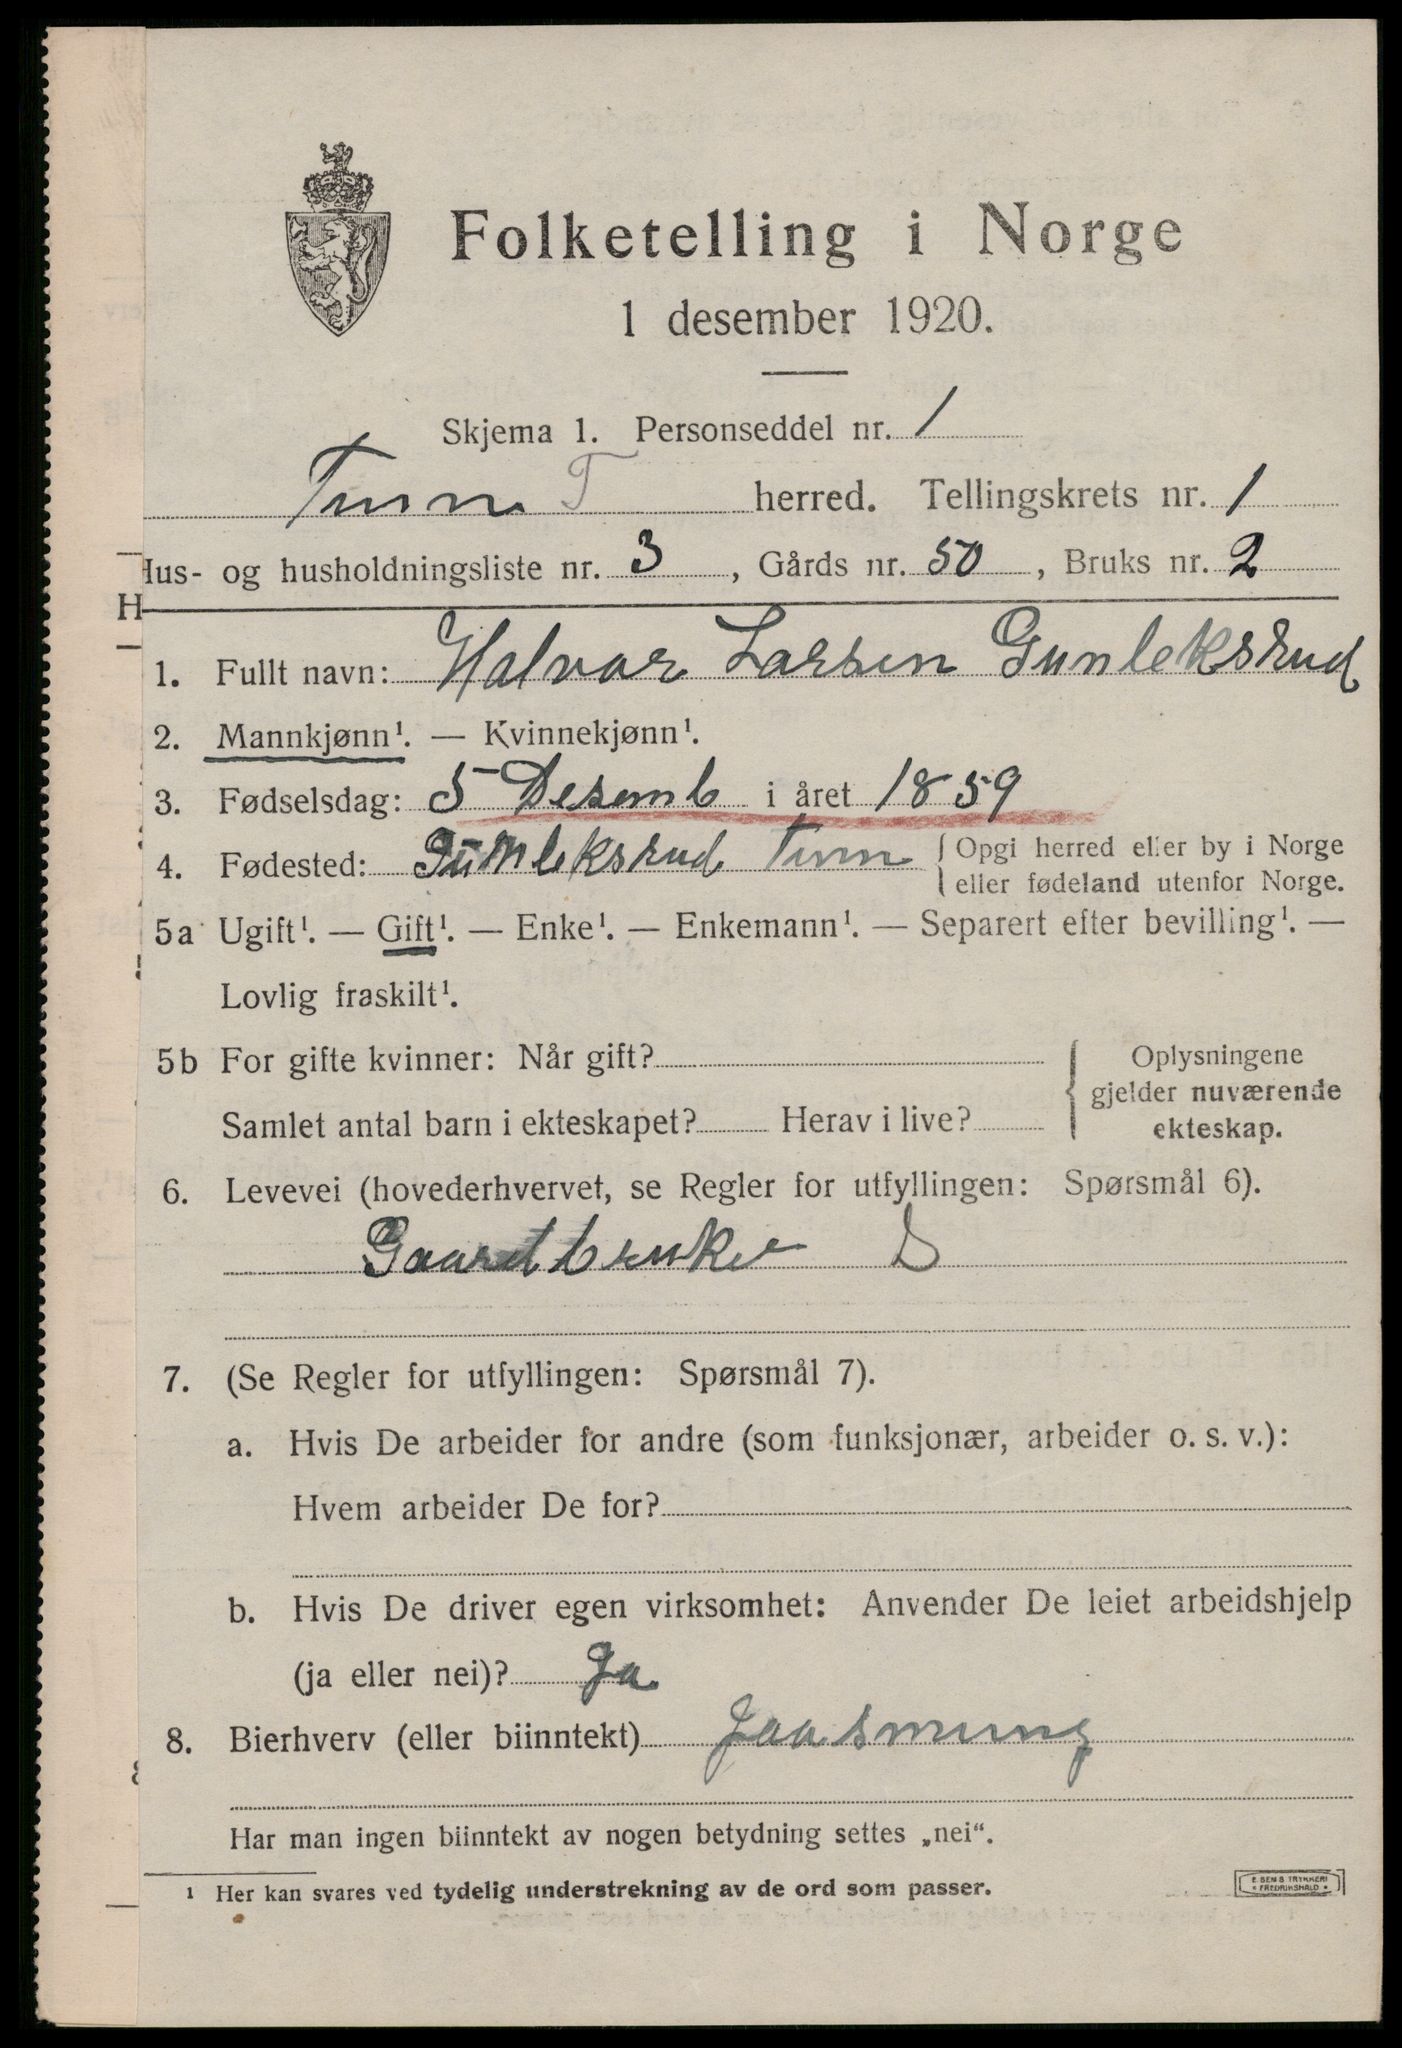 Folketelling i Norge
1 desember 1920.
Skjema 1. Personseddel nr. 1
Tinn T herred. Tellingskrets nr. 1
Hus- og husholdningsliste nr. 3, Gårds nr. 50, Bruks nr. 2
H
1. Fullt navn: Halvor Larsen Gunleksrud
2. Mannkjønn¹. — Kvinnekjønn¹.
3. Fødselsdag: 5 Desemb i året 1859
4. Fødested: Gunleksrud Tinn { Opgi herred eller by i Norge
eller fødeland utenfor Norge.
5a Ugift¹. — Gift¹. — Enke¹. — Enkemann¹. — Separert efter bevilling¹. —
Lovlig fraskilt¹.
5b For gifte kvinner: Når gift?
Samlet antal barn i ekteskapet? Herav i live?
{ Oplysningene
gjelder nuværende
ekteskap.
6. Levevei (hovederhvervet, se Regler for utfyllingen: Spørsmål 6).
Gaardbruker S
7. (Se Regler for utfyllingen: Spørsmål 7).
a. Hvis De arbeider for andre (som funksjonær, arbeider o. s. v.):
Hvem arbeider De for?
b. Hvis De driver egen virksomhet: Anvender De leiet arbeidshjelp
(ja eller nei)? Ja
8. Bierhverv (eller biinntekt)
Har man ingen biinntekt av nogen betydning settes „nei“.
¹ Her kan svares ved tydelig understrekning av de ord som passer.
E. SEM S TRYKKERI
FREDRIKSHALD